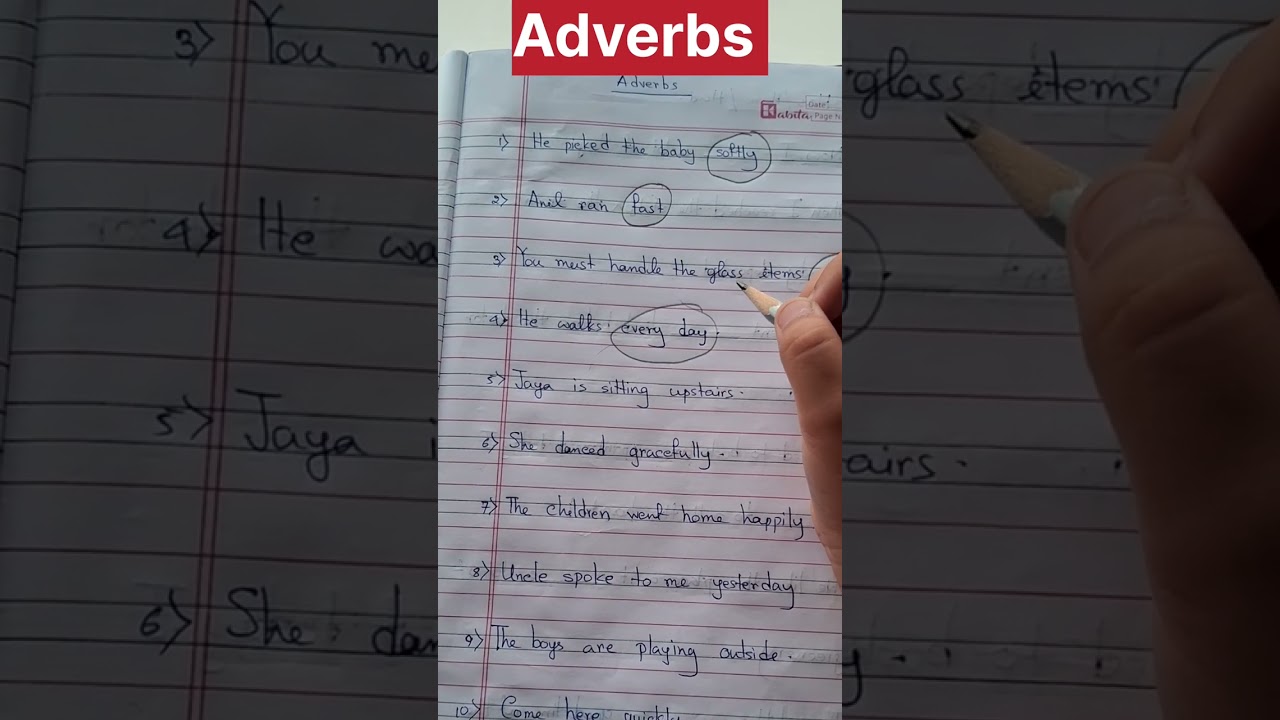 Adverbs
Adverbs
Kabita
Date:
Page N
1) He picked the baby softly
2) Anil ran fast
3) You must handle the glass items
4) He walks every day.
5) Jaya is sitting upstairs.
6) She danced gracefully.
7) The children went home happily
8) Uncle spoke to me yesterday
9) The boys are playing outside.
10) Come here quickly
3) You me
4) He wa
5) Jaya i
6) She dan
glass items
airs.